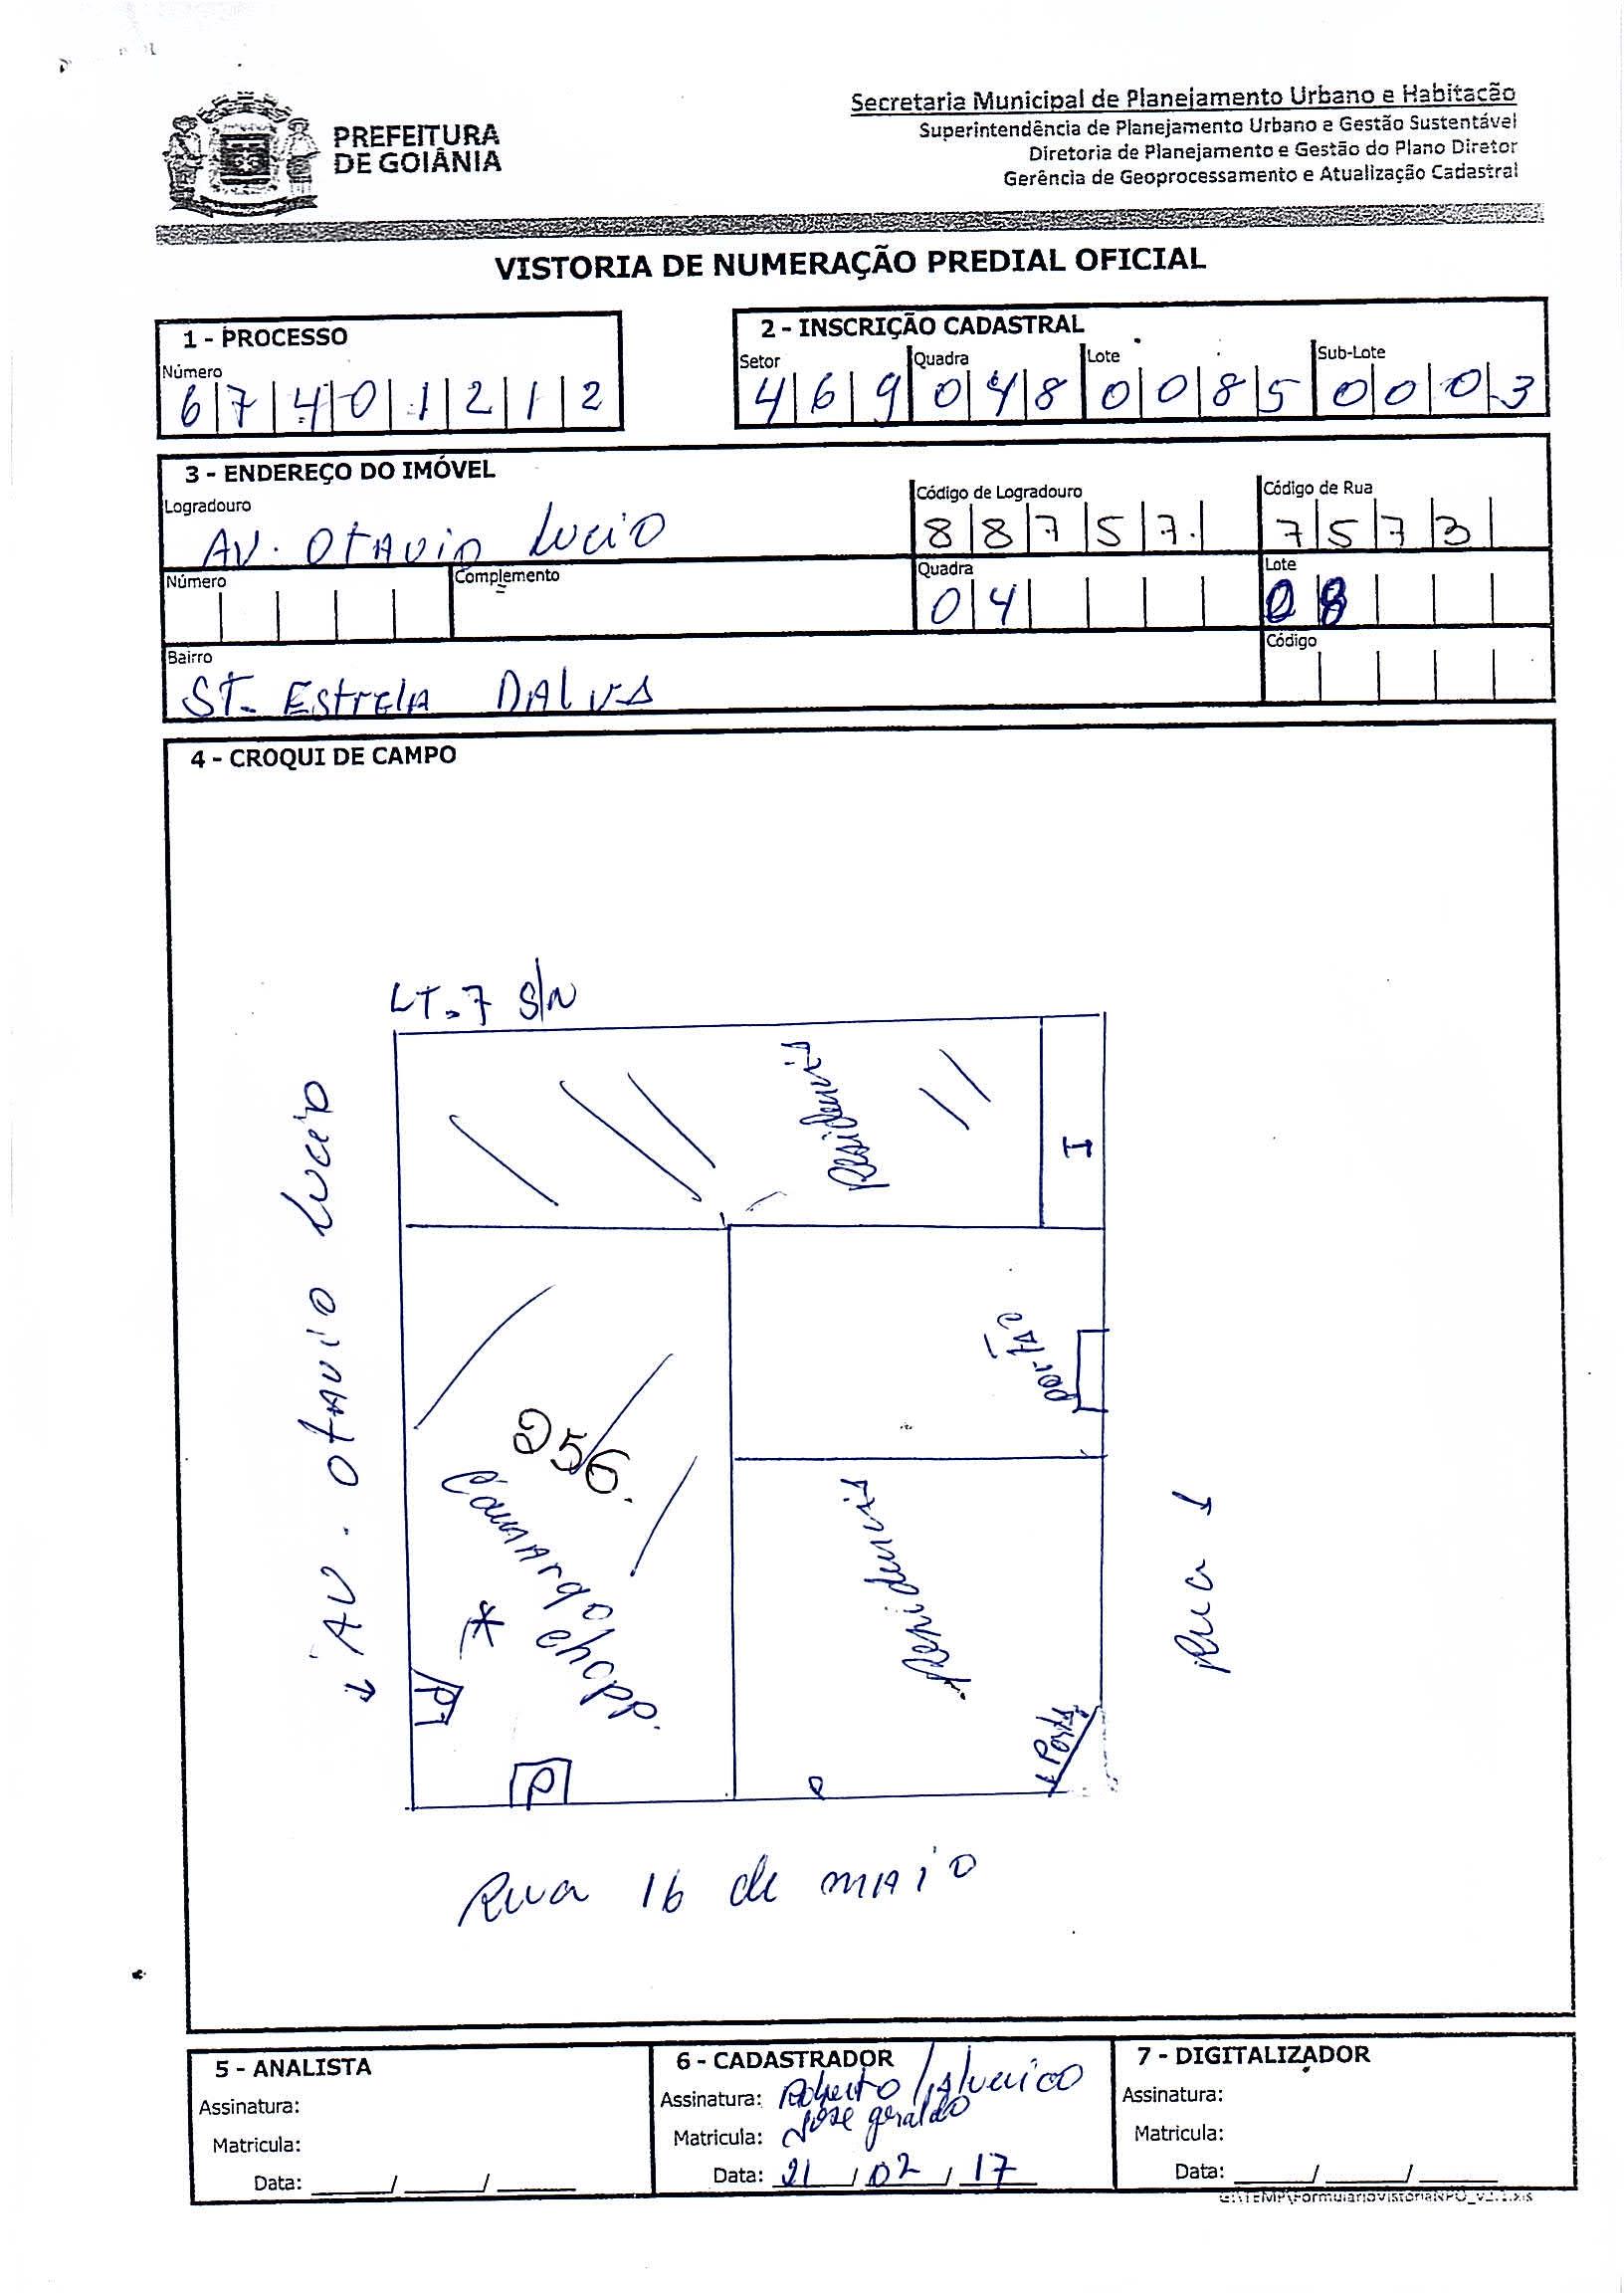 PREFEITURA
DE GOIÂNIA
Secretaria Municipal de Planejamento Urbano e Habitação
Superintendência de Planejamento Urbano e Gestão Sustentável
Diretoria de Planejamento e Gestão do Plano Diretor
Gerência de Geoprocessamento e Atualização Cadastral
VISTORIA DE NUMERAÇÃO PREDIAL OFICIAL
1 - PROCESSO
Número
6 7 4 0 1 2 1 2
2 - INSCRIÇÃO CADASTRAL
Setor Quadra Lote Sub-Lote
4 6 9 0 4 8 0 0 8 5 0 0 0 3
3 - ENDEREÇO DO IMÓVEL
Logradouro Código de Logradouro Código de Rua
AV. OTAVIO Lucio 8 8 7 5 7. 7 5 7 3
Número Complemento Quadra Lote
0 4 0 8
Bairro Código
ST. EstrelA DAlvA
4 - CROQUI DE CAMPO
LT. 7 S/N
Residencia
I
AV. OtAvio Lucio
portão
256.
CamArgo
chopp.
Residencia
Rua 1
P
P
Porta
Rua 16 de mAio
5 - ANALISTA
Assinatura:
Matricula:
Data: / /
6 - CADASTRADOR
Assinatura: Roberto
Matricula: Jose geraldo
Data: 21 / 02 / 17
7 - DIGITALIZADOR
Assinatura:
Matricula:
Data: / /
G:\TEMP\FormularioVistoriaNPO_v2.1.xls